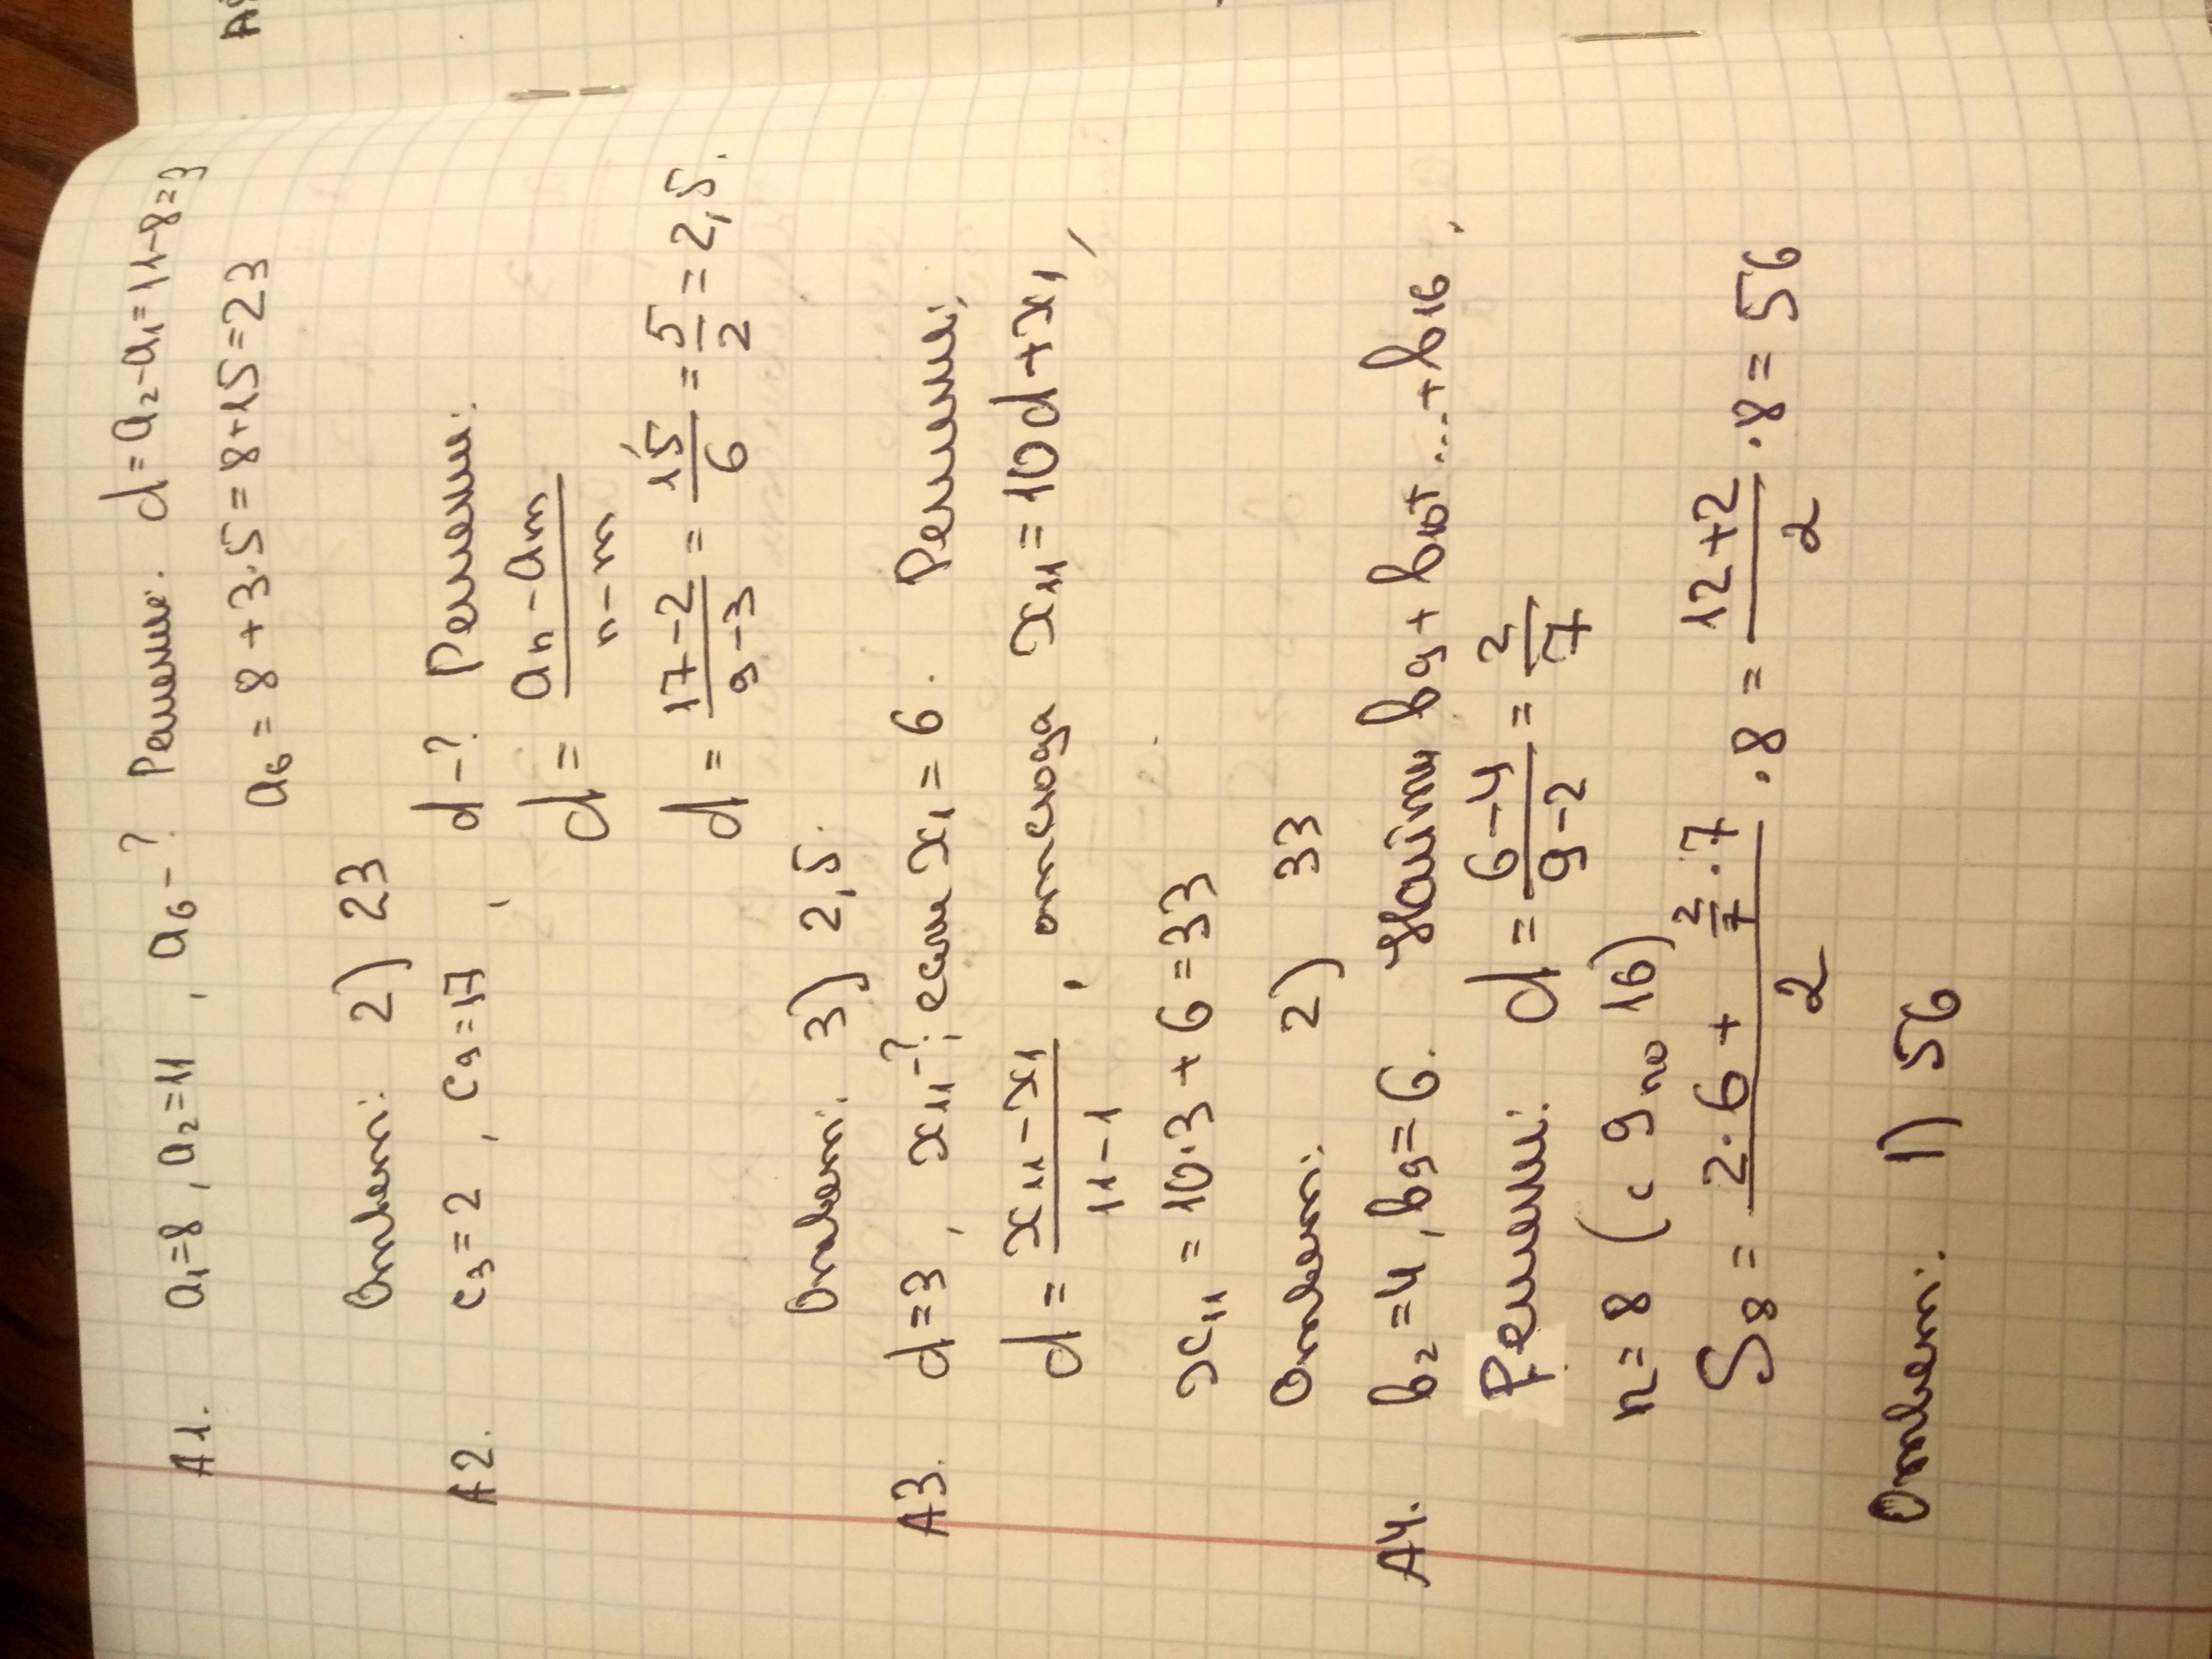 A1. a₁=8, a₂=11, a₆-? Решение. d=a₂-a₁=11-8=3
a₆=8+3·5=8+15=23
Ответ: 2) 23
A2. c₃=2, c₉=17, d-? Решение:
d = (aₙ-aₘ)/(n-m)
d = (17-2)/(9-3) = 15/6 = 5/2 = 2,5.
Ответ: 3) 2,5.
A3. d=3, x₁₁-?, если x₁=6. Решение:
d = (x₁₁-x₁)/(11-1), отсюда x₁₁=10d+x₁,
x₁₁=10·3+6=33
Ответ: 2) 33
A4. b₂=4, b₉=6. Найти b₉+b₁₀+...+b₁₆.
Решение: d = (6-4)/(9-2) = 2/7
n=8 (с 9 по 16)
S₈ = (2·6+2/7·7)/2 ·8 = (12+2)/2 ·8=56
Ответ: 1) 56